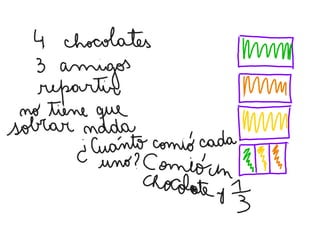 4 chocolates
3 amigos
repartir
no tiene que
sobrar nada
¿Cuánto comió cada
uno? Comió un
chocolate y 1/3